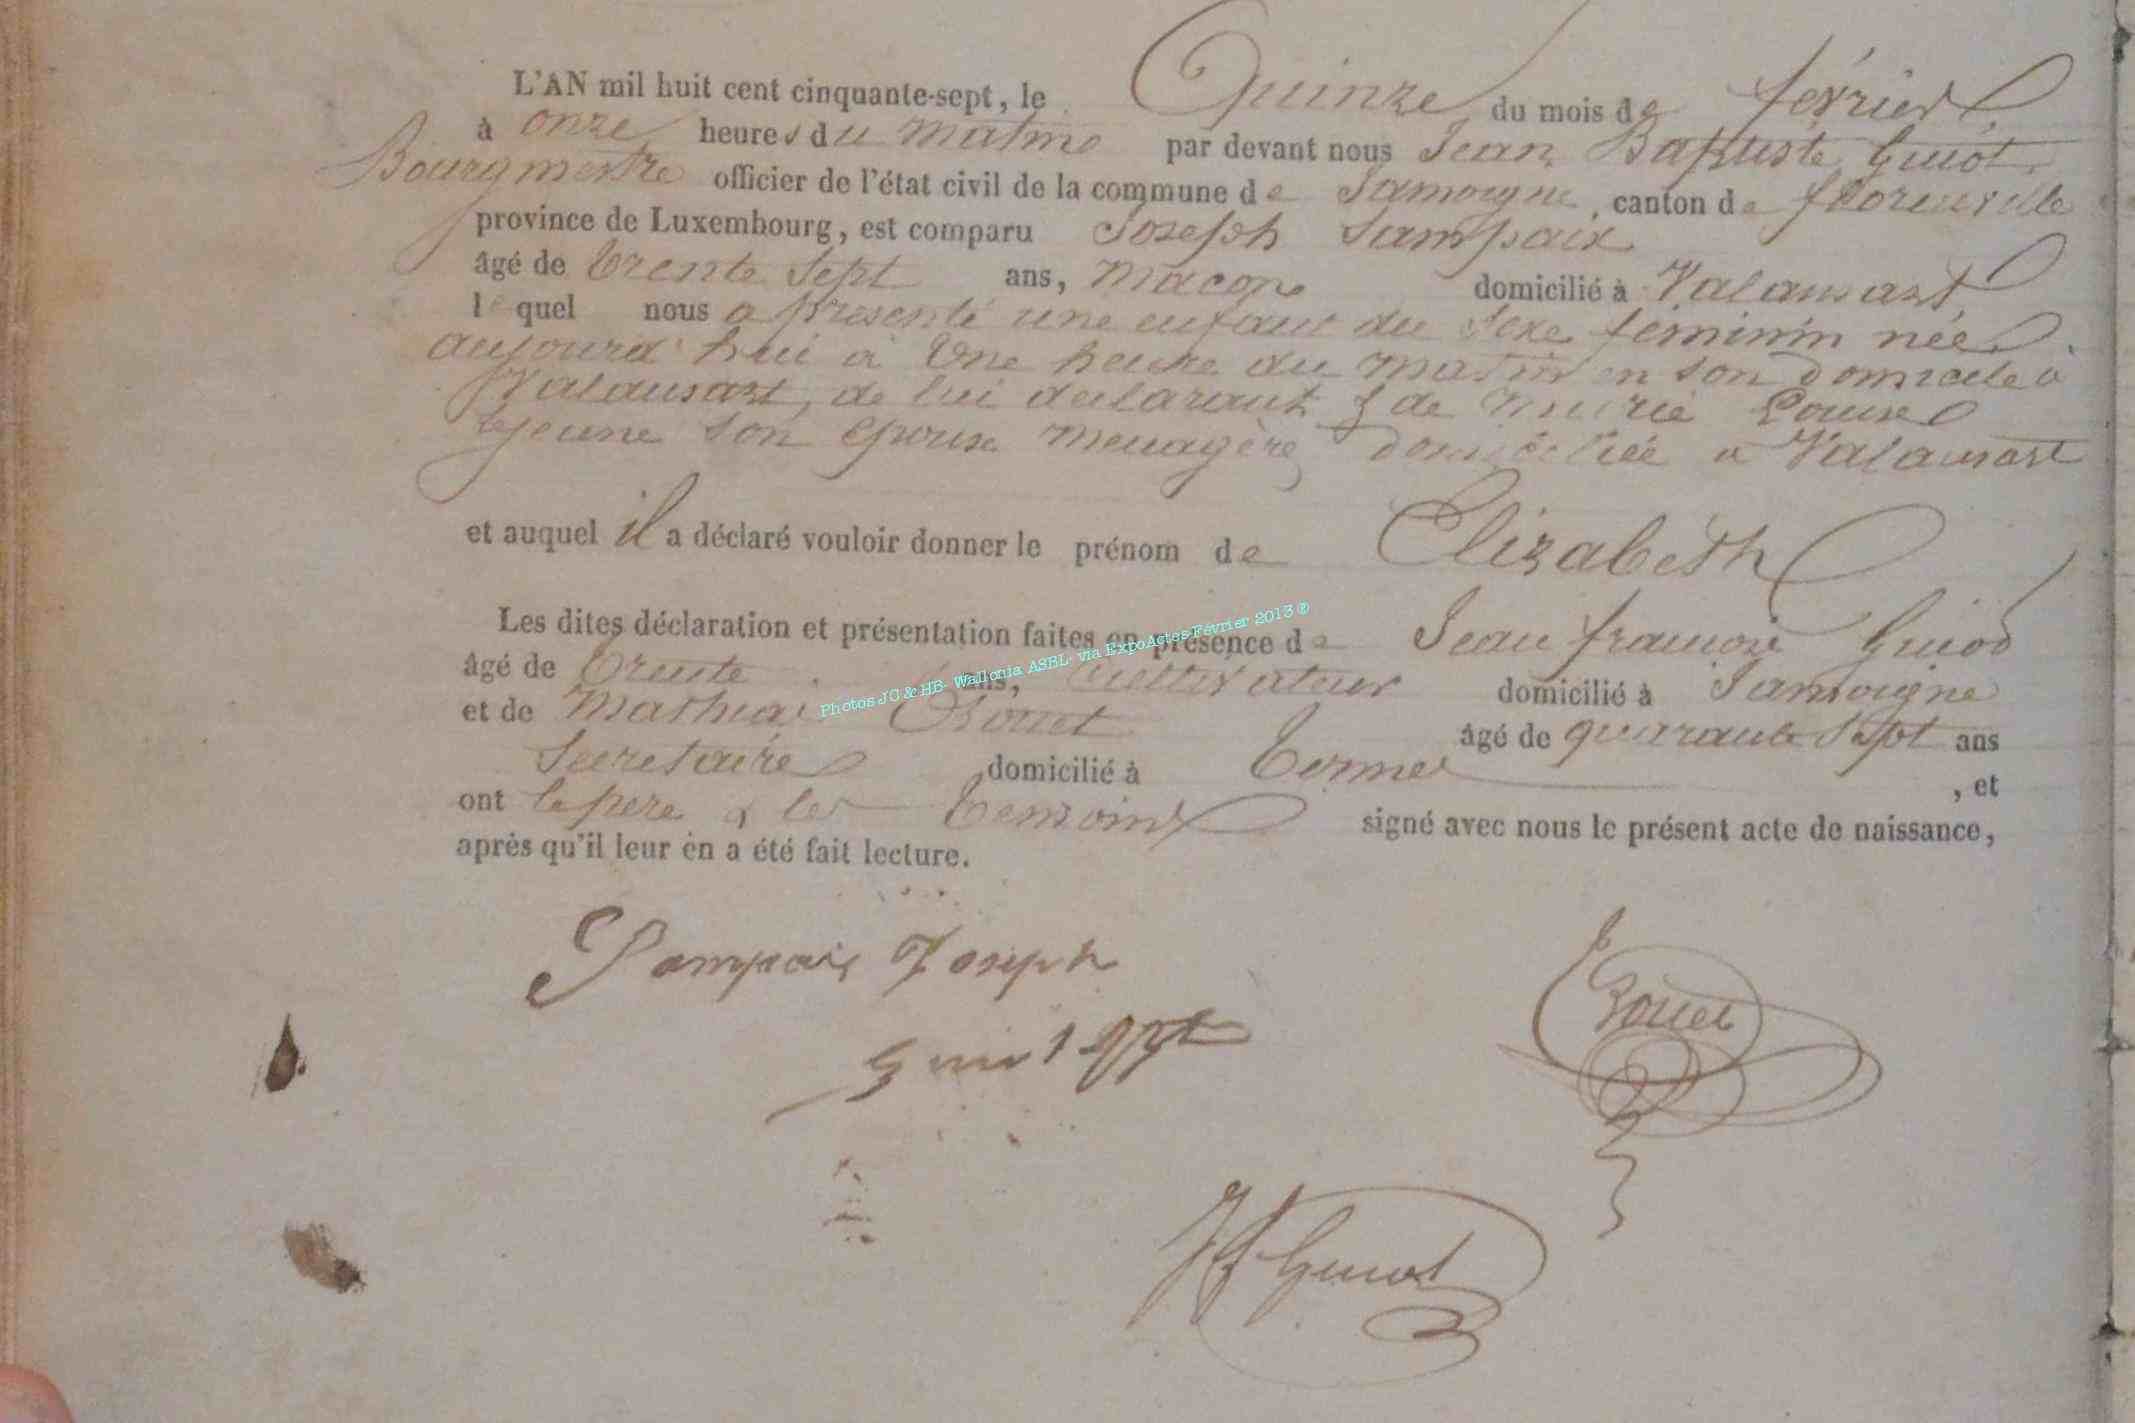 L'AN mil huit cent cinquante-sept, le Quinze du mois de février
à onze heures du matin par devant nous Jean Baptiste Guiot
Bourgmestre officier de l'état civil de la commune de Jamoigne, canton de florenville
province de Luxembourg, est comparu Joseph Sampaix
âgé de trente sept ans, macon domicilié à Valansart
lequel nous a présenté une enfant du sexe féminin née
aujourd'hui à Une heure du matin en son domicile à
Valansart, de lui déclarant & de Marie Louise
Lejeune son épouse menagère domiciliée à Valansart
et auquel il a déclaré vouloir donner le prénom de Elizabeth
Les dites déclaration et présentation faites en présence de Jean françois Guiot
âgé de trente ans, Cultivateur domicilié à Jamoigne
et de Mathias Rouet âgé de quarante sept ans
Secretaire domicilié à termes, et
ont le père & les temoins signé avec nous le présent acte de naissance,
après qu'il leur en a été fait lecture.
Photos JC & HB- Wallonia ASBL- via ExpoActes Février 2013 ®
Sampaix Joseph
Rouet
Guiot
JF Guiot